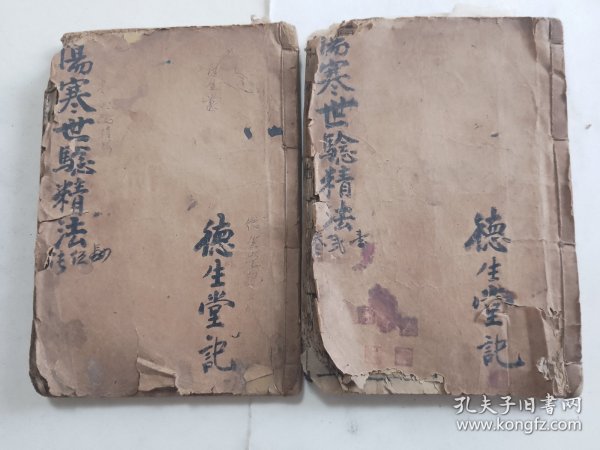 傷寒世驗精法
德生堂記
傷寒世驗精法
德生堂記
孔夫子旧书网
www.kongfz.com